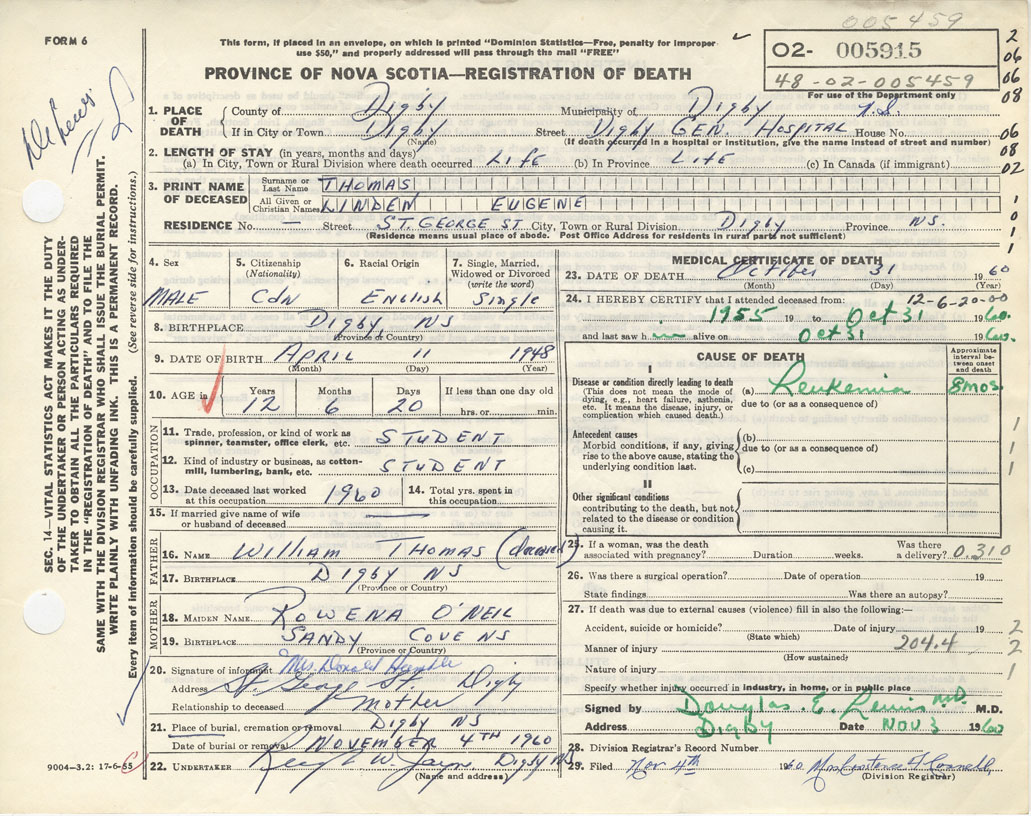 005459
FORM 6
This form, if placed in an envelope, on which is printed "Dominion Statistics—Free, penalty for improper
use $50," and properly addressed will pass through the mail "FREE"
O2- 005915
48-02-005459
For use of the Department only
PROVINCE OF NOVA SCOTIA—REGISTRATION OF DEATH
2
06
06
08
06
08
02
1
0
1
1
1. PLACE OF DEATH
County of Digby Municipality of Digby N.S.
If in City or Town Digby Street Digby GEN. HOSPITAL House No.
(Name) (If death occurred in a hospital or institution, give the name instead of street and number)
2. LENGTH OF STAY (in years, months and days)
(a) In City, Town or Rural Division where death occurred LIFE (b) In Province LIFE (c) In Canada (if immigrant)
3. PRINT NAME OF DECEASED
Surname or Last Name THOMAS
All Given or Christian Names LINDEN EUGENE
RESIDENCE No. — Street ST. GEORGE ST City, Town or Rural Division Digby Province NS.
(Residence means usual place of abode. Post Office Address for residents in rural parts not sufficient)
4. Sex MALE
5. Citizenship (Nationality) CDN
6. Racial Origin ENGLISH
7. Single, Married, Widowed or Divorced (write the word) Single
8. BIRTHPLACE Digby, NS
(Province or Country)
9. DATE OF BIRTH APRIL 11 1948
(Month) (Day) (Year)
10. AGE in Years 12 Months 6 Days 20 If less than one day old hrs. or min.
OCCUPATION
11. Trade, profession, or kind of work as spinner, teamster, office clerk, etc. STUDENT
12. Kind of industry or business, as cotton-mill, lumbering, bank, etc. STUDENT
13. Date deceased last worked at this occupation 1960
14. Total yrs. spent in this occupation
15. If married give name of wife or husband of deceased —
FATHER
16. NAME WILLIAM THOMAS (deceased)
17. BIRTHPLACE DIGBY NS
(Province or Country)
MOTHER
18. MAIDEN NAME ROWENA O'NEIL
19. BIRTHPLACE SANDY COVE NS
(Province or Country)
20. Signature of informant Mrs. Donald
Address St. George St. Digby
Relationship to deceased mother
21. Place of burial, cremation or removal DIGBY NS
Date of burial or removal NOVEMBER 4TH 1960
22. UNDERTAKER W. Digby NS
(Name and address)
MEDICAL CERTIFICATE OF DEATH
23. DATE OF DEATH October 31 1960
(Month) (Day)
24. I HEREBY CERTIFY that I attended deceased from: 12-6-20-00
1955 19 to Oct 31 1960.
and last saw him alive on Oct 31 1960.
CAUSE OF DEATH
Approximate interval between onset and death
I
Disease or condition directly leading to death (a) Leukemia 8 mos.
(This does not mean the mode of dying, e.g., heart failure, asthenia, etc. It means the disease, injury, or complication which caused death.)
due to (or as a consequence of)
Antecedent causes
Morbid conditions, if any, giving rise to the above cause, stating the underlying condition last.
(b)
due to (or as a consequence of)
(c)
1
1
1
II
Other significant conditions
contributing to the death, but not related to the disease or condition causing it.
25. If a woman, was the death associated with pregnancy? Duration weeks. Was there a delivery? 0.310
26. Was there a surgical operation? Date of operation 19
State findings Was there an autopsy?
27. If death was due to external causes (violence) fill in also the following:—
Accident, suicide or homicide? Date of injury 19 2
(State which)
Manner of injury 204.4 2
(How sustained)
Nature of injury 1
Specify whether injury occurred in industry, in home, or in public place
Signed by Douglas E. Lewis M.D. M.D.
Address Digby Date NOV 3 1960
28. Division Registrar's Record Number
29. Filed Nov 4th 1960
(Division Registrar)
SEC. 14—VITAL STATISTICS ACT MAKES IT THE DUTY
OF THE UNDERTAKER OR PERSON ACTING AS UNDER-
TAKER TO OBTAIN ALL THE PARTICULARS REQUIRED
IN THE "REGISTRATION OF DEATH" AND TO FILE THE
SAME WITH THE DIVISION REGISTRAR WHO SHALL ISSUE THE BURIAL PERMIT.
WRITE PLAINLY WITH UNFADING INK. THIS IS A PERMANENT RECORD.
Every item of information should be carefully supplied. (See reverse side for instructions.)
9004-3.2: 17-6-55